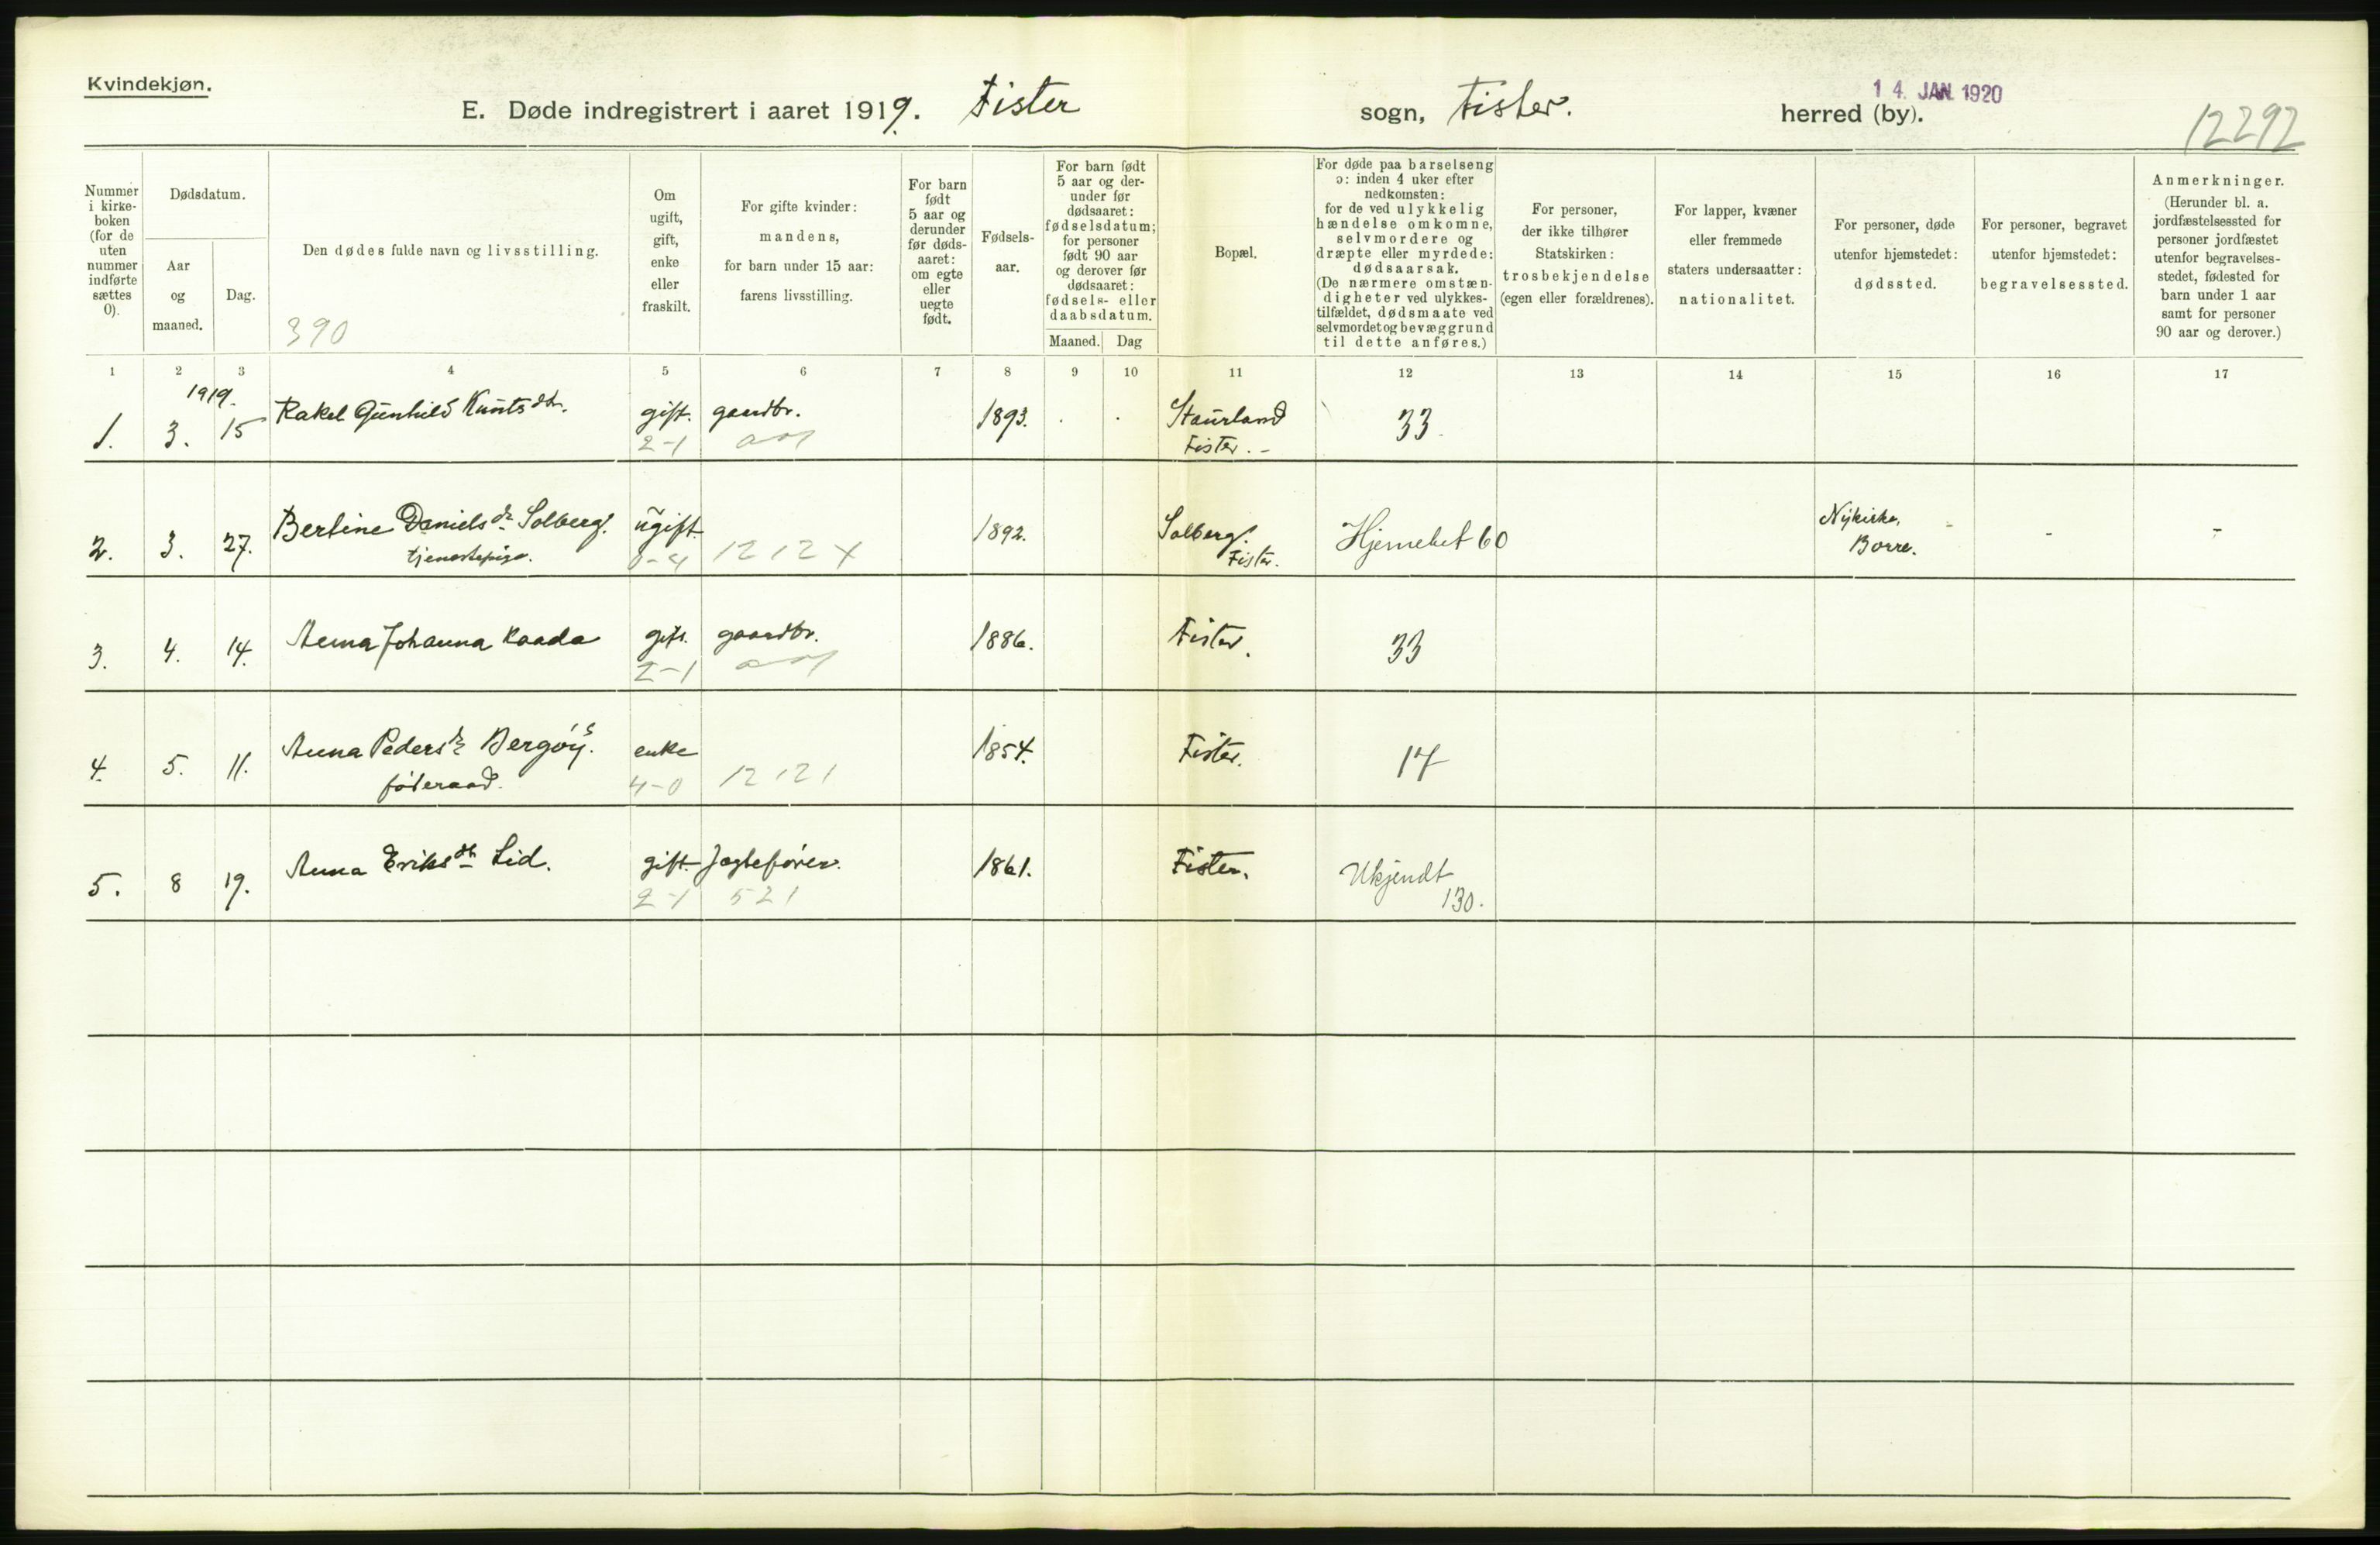 Kvindekjøn.
E. Døde indregistrert i aaret 1919. Fister sogn, Fister. herred (by).
14. JAN. 1920
12292
Nummer i kirke-boken (for de uten nummer indførte sættes 0).
Dødsdatum.
Aar og maaned.
Dag.
Den dødes fulde navn og livsstilling.
390
Om ugift, gift, enke eller fraskilt.
For gifte kvinder: mandens, for barn under 15 aar: farens livsstilling.
For barn født 5 aar og derunder før døds-aaret: om egte eller uegte født.
Fødsels-aar.
For barn født 5 aar og der-under før dødsaaret: fødselsdatum; for personer født 90 aar og derover før dødsaaret: fødsels- eller daabsdatum.
Maaned. Dag
Bopæl.
For døde paa barselseng ɔ: inden 4 uker efter nedkomsten: for de ved ulykkelig hændelse omkomne, selvmordere og dræpte eller myrdede: dødsaarsak. (De nærmere omstæn-digheter ved ulykkes-tilfældet, dødsmaate ved selvmordet og bevæggrund til dette anføres.)
For personer, der ikke tilhører Statskirken: trosbekjendelse (egen eller forældrenes).
For lapper, kvæner eller fremmede staters undersaatter: nationalitet.
For personer, døde utenfor hjemstedet: dødssted.
For personer, begravet utenfor hjemstedet: begravelsessted.
Anmerkninger. (Herunder bl. a. jordfæstelsessted for personer jordfæstet utenfor begravelses-stedet, fødested for barn under 1 aar samt for personer 90 aar og derover.)
1 2 3 4 5 6 7 8 9 10 11 12 13 14 15 16 17
1919.
1. 3. 15 Rakel Gunhild Knuts dtr. gift. gaardbr. 1893. Staurland 33.
2-1 Fister. -
2. 3. 27. Bertine Daniels dr Solberg. ugift 1892. Solberg. Hjernebet 60 Nykirke, - -
tjenestepige. 12 12 4 Fister. Borre.
3. 4. 14. Anna Johanna Kaada gift. gaardbr. 1886. Fister. 33
2-1
4. 5. 11. Anna Peders dr Bergøy. enke 1854. Fister. 17
føderaad. 4-0 12 12 1
5. 8 19. Anna Eriks dtr Lid. gift. Jagtefører. 1861. Fister. Ukjendt
2-1 521 130.